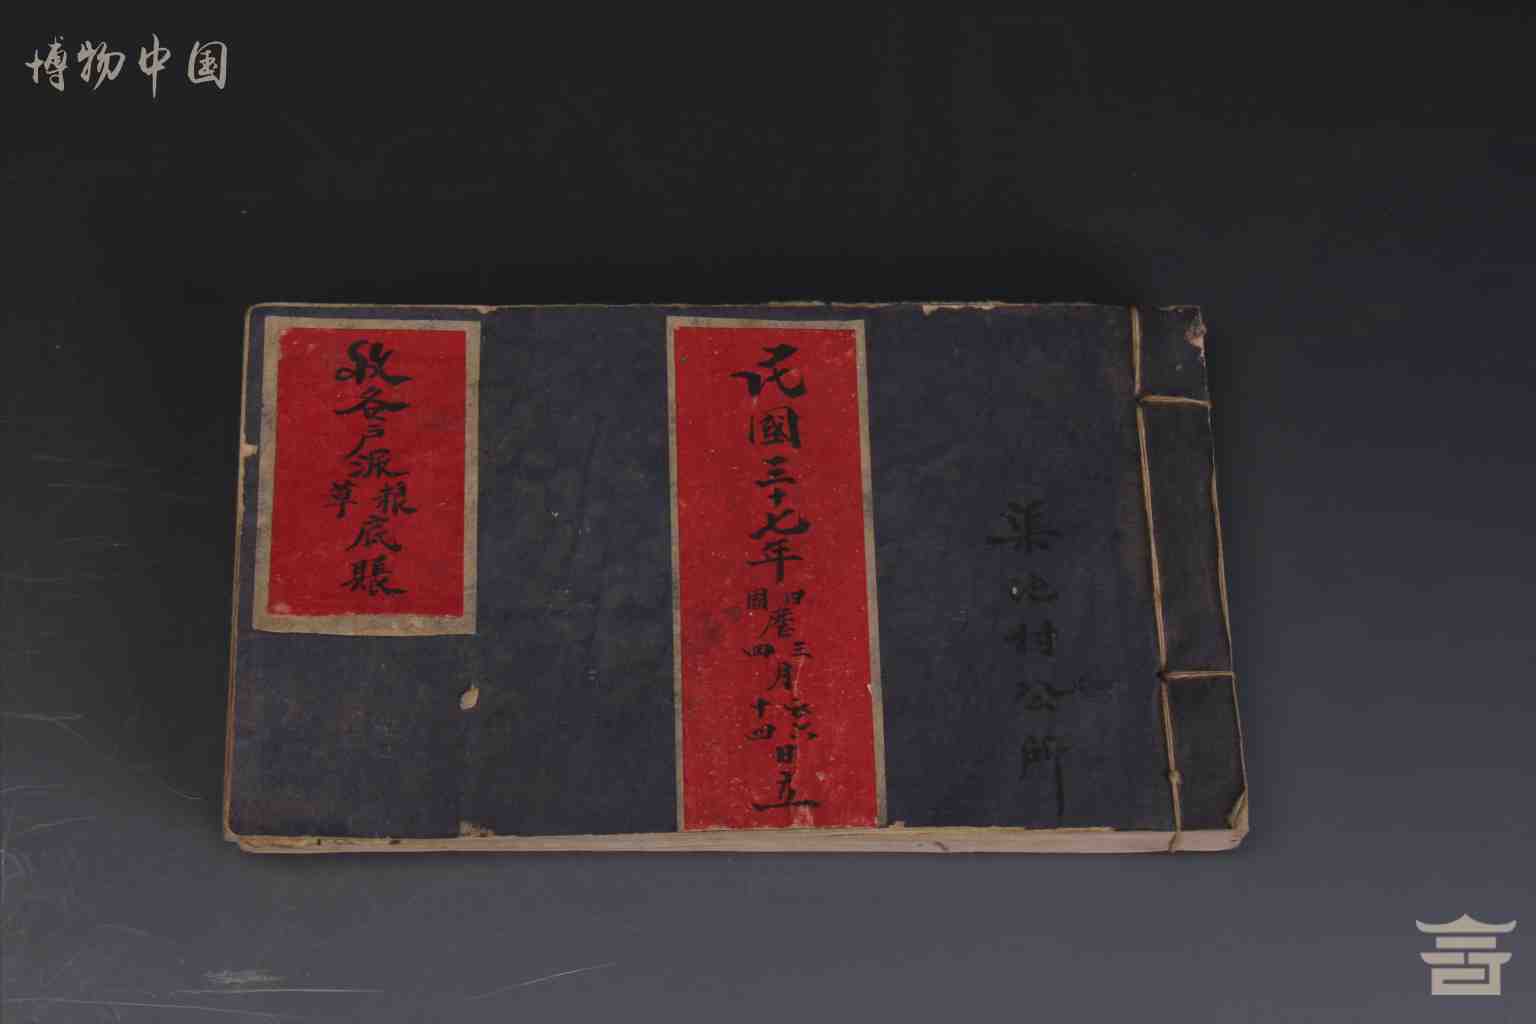 博物中国
渠池村公所
民國三十七年旧國曆三四月六十四日立
收各戶派粮草底賬